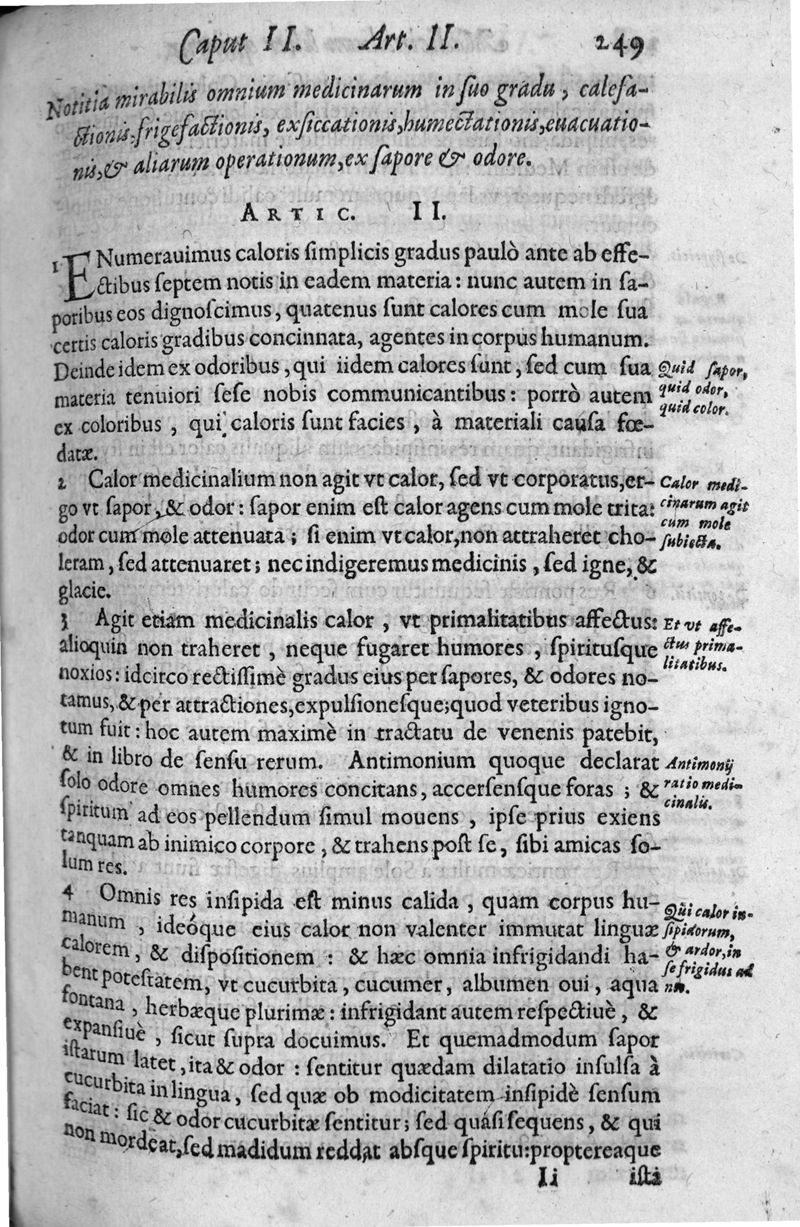 Caput II. Art. II. 249
Notitia mirabilis omnium medicinarum in ſuo gradu, calefa-
ctionis, frigefactionis, exſiccationis, humectationis, euacuatio-
nis, & aliarum operationum, ex ſapore & odore.
ARTIC. II.
1 ENumerauimus caloris ſimplicis gradus paulò ante ab effe-
ctibus ſeptem notis in eadem materia: nunc autem in ſa-
poribus eos dignoſcimus, quatenus ſunt calores cum mole ſua
certis caloris gradibus concinnata, agentes in corpus humanum.
Deinde idem ex odoribus, qui iidem calores ſunt, ſed cum ſua
materia tenuiori ſeſe nobis communicantibus: porrò autem
ex coloribus, qui caloris ſunt facies, à materiali cauſa fœ-
datæ.
Quid ſapor,
quid odor,
quid color.
2 Calor medicinalium non agit vt calor, ſed vt corporatus, er-
go vt ſapor, & odor: ſapor enim eſt calor agens cum mole trita:
odor cum mole attenuata; ſi enim vt calor, non attraheret cho-
leram, ſed attenuaret; nec indigeremus medicinis, ſed igne, &
glacie.
Calor medi-
cinarum agit
cum mole
ſubiecta.
3 Agit etiam medicinalis calor, vt primalitatibus affectus:
alioquin non traheret, neque fugaret humores, ſpirituſque
noxios: idcirco rectiſſimè gradus eius per ſapores, & odores no-
tamus, & per attractiones, expulſioneſque; quod veteribus igno-
tum fuit: hoc autem maximè in tractatu de venenis patebit,
& in libro de ſenſu rerum. Antimonium quoque declarat
ſolo odore omnes humores concitans, accerſenſque foras; &
ſpiritum ad eos pellendum ſimul mouens, ipſe prius exiens
tanquam ab inimico corpore, & trahens poſt ſe, ſibi amicas ſo-
lum res.
Et vt affe-
ctus prima-
litatibus.
Antimonij
ratio medi-
cinalis.
4 Omnis res inſipida eſt minus calida, quam corpus hu-
manum, ideóque eius calor non valenter immutat linguæ
calorem, & diſpoſitionem: & hæc omnia infrigidandi ha-
bent poteſtatem, vt cucurbita, cucumer, albumen oui, aqua
fontana, herbæque plurimæ: infrigidant autem reſpectiuè, &
expanſiuè, ſicut ſupra docuimus. Et quemadmodum ſapor
iſtarum latet, ita & odor: ſentitur quædam dilatatio inſulſa à
cucurbita in lingua, ſed quæ ob modicitatem inſipidè ſenſum
faciat: ſic & odor cucurbitæ ſentitur; ſed quáſi ſequens, & qui
non mordeat, ſed madidum reddat abſque ſpiritu: proptereaque
Qui calor in-
ſipidorum,
& ardor, in
ſe frigidus ad
nn.
Ii iſti